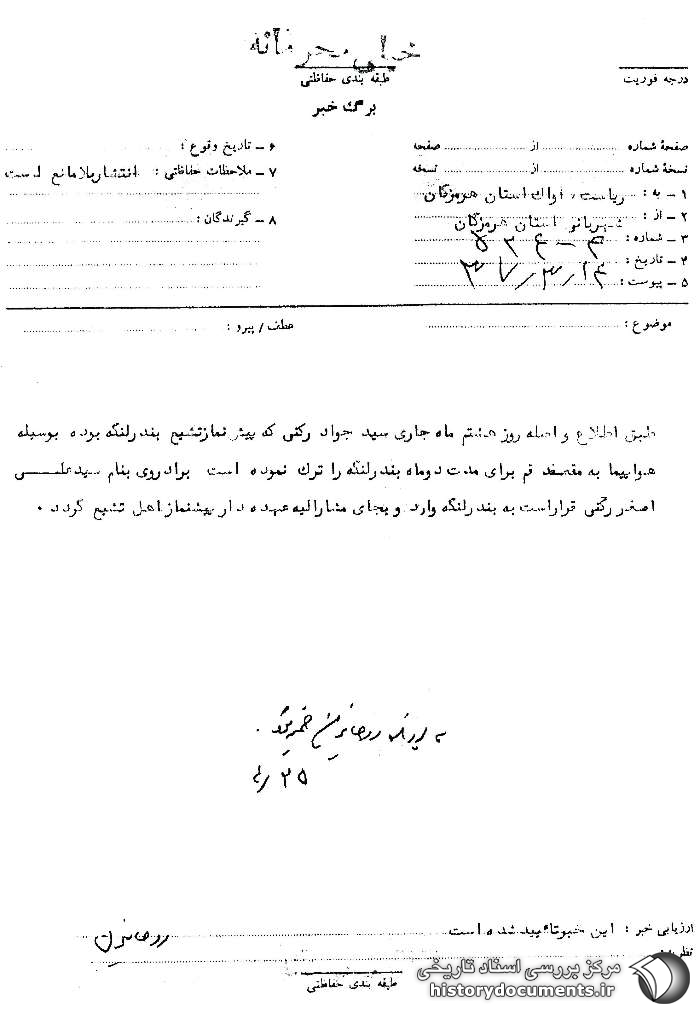 خیلی محرمانه
طبقه بندی حفاظتی
درجه فوریت
برگ خبر
صفحهٔ شماره از صفحه
نسخهٔ شماره از نسخه
۱ ـ به : ریاست ساواک استان هرمزگان
۲ ـ از : شهربانی استان هرمزگان
۳ ـ شماره :
۴ ـ تاریخ :
۵ ـ پیوست :
۶ ـ تاریخ وقوع :
۷ ـ ملاحظات حفاظتی : انتشار بلامانع است
۸ ـ گیرندگان :
موضوع : عطف / پیرو :
طبق اطلاع واصله روز هشتم ماه جاری سید جواد رکنی که پیش نماز تشیع بندرلنگه بوده بوسیله
هواپیما به مقصد قم برای مدت دوماه بندرلنگه را ترک نموده است برادروی بنام سیدعلی
اصغر رکنی قراراست به بندرلنگه وارد و بجای مشارالیه عهده دار پیشنماز اهل تشیع گردد .
۲۵
ارزیابی خبر : این خبر تائید شده است
نظریه :
طبقه بندی حفاظتی
مرکز بررسی اسناد تاریخی
historydocuments.ir